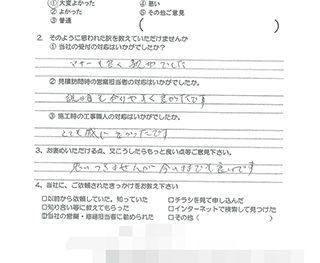 ①大変よかった ④悪い
②よかった ⑤その他ご意見
③普通 ( )
2. そのように思われた訳を教えていただけませんか
① 当社の受付の対応はいかがでしたか?
マナーも良く親切でした
② 見積訪問時の営業担当者の対応はいかがでしたか。
説明もわかりやすく良かったです
③ 施工時の工事職人の対応はいかがでしたか。
とても感じ よかったです
3. お褒めいただける点、又こうしたらもっと良い点等ご意見下さい。
思いつきませんが 今のままでも良いです
4. 当社に、ご依頼されたきっかけをお教え下さい
□以前から依頼していた。知っていた □チラシを見て申し込んだ
□知り合い等に教えてもらった □インターネットで検索して見つけた
☑当社の営業・修繕担当者に勧められた □その他(